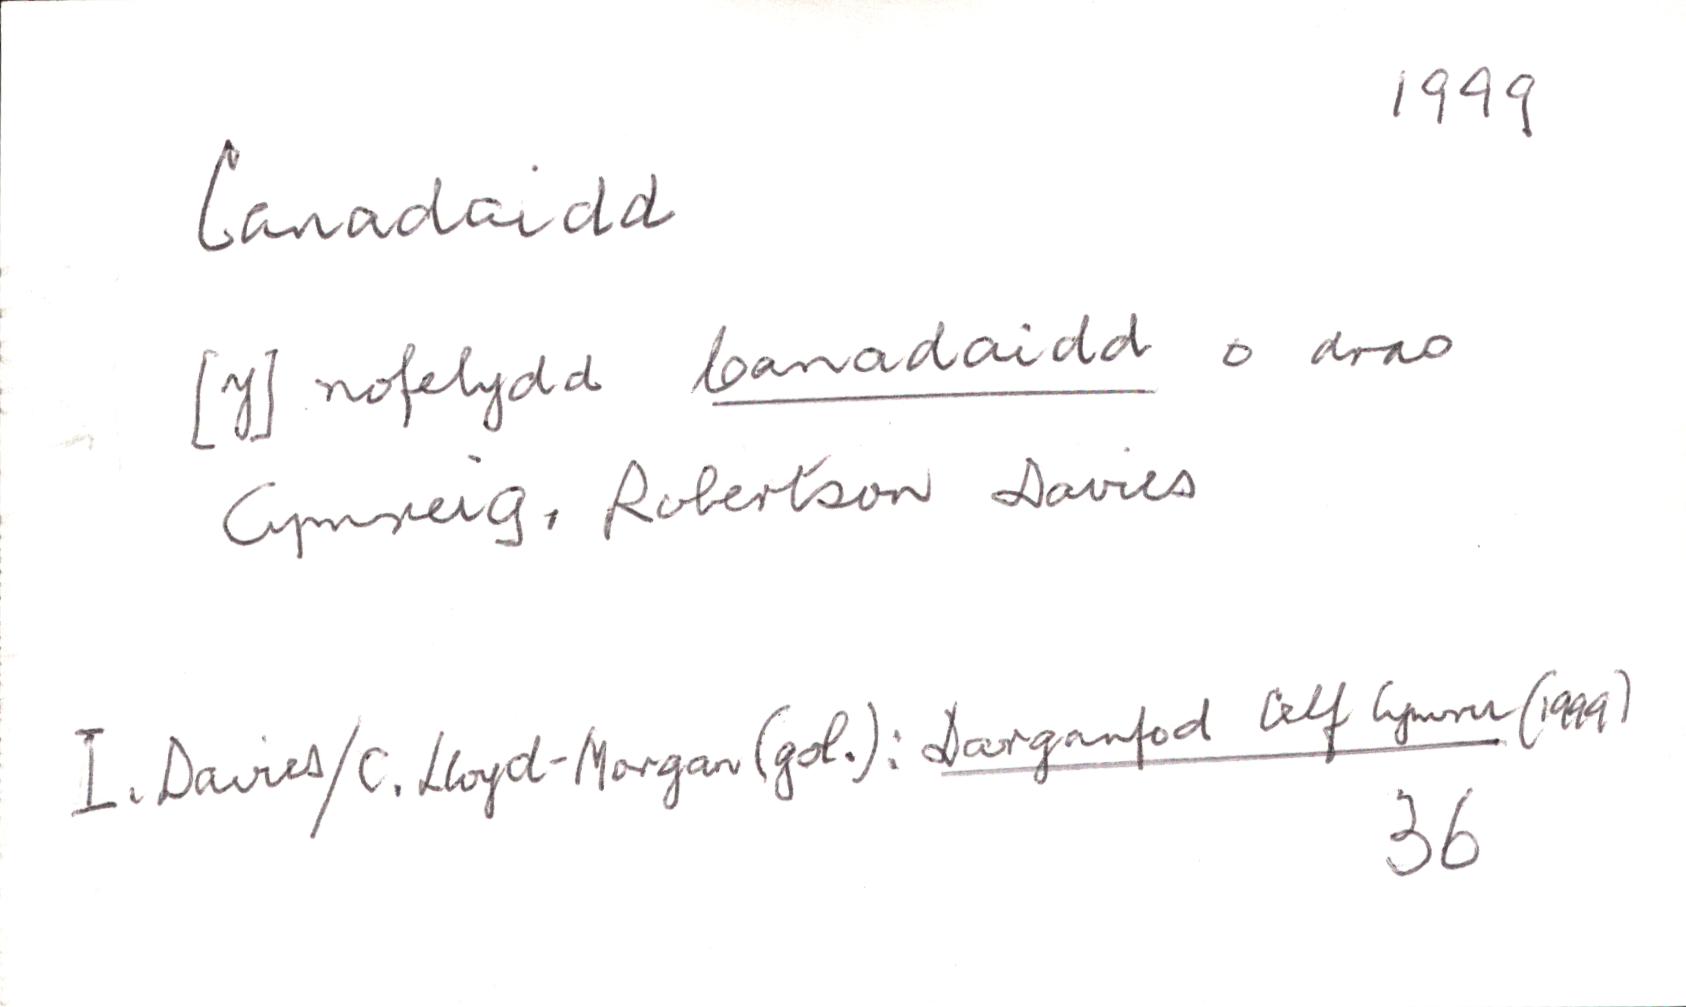 1999
Canadaidd
[y] nofelydd Canadaidd o dras
Cymreig, Robertson Davies
I. Davies/C. Lloyd-Morgan (gol.): Darganfod Celf Cymru (1999)
36